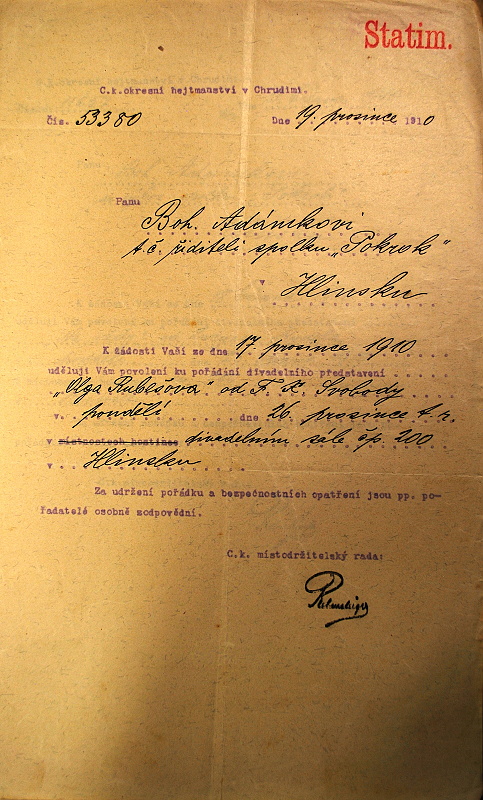 Statim.
C.k.okresní hejtmanství v Chrudimi.
Čís. 53380 Dne 19. prosince 1910
Panu
Boh. Adámkovi
t.č. řiditeli spolku „Pokrok"
v Hlinsku
K žádosti Vaší ze dne 17. prosince 1910
uděluji Vám povolení ku pořádání divadelního představení
„Olga Rubešova" od F. X. Svobody
v pondělí dne 26. prosince t. r.
v místnostech hostince divadelním sále čp. 200
v Hlinsku
Za udržení pořádku a bezpečnostních opatření jsou pp. po-
řadatelé osobně zodpovědní.
C.k. místodržitelský rada: